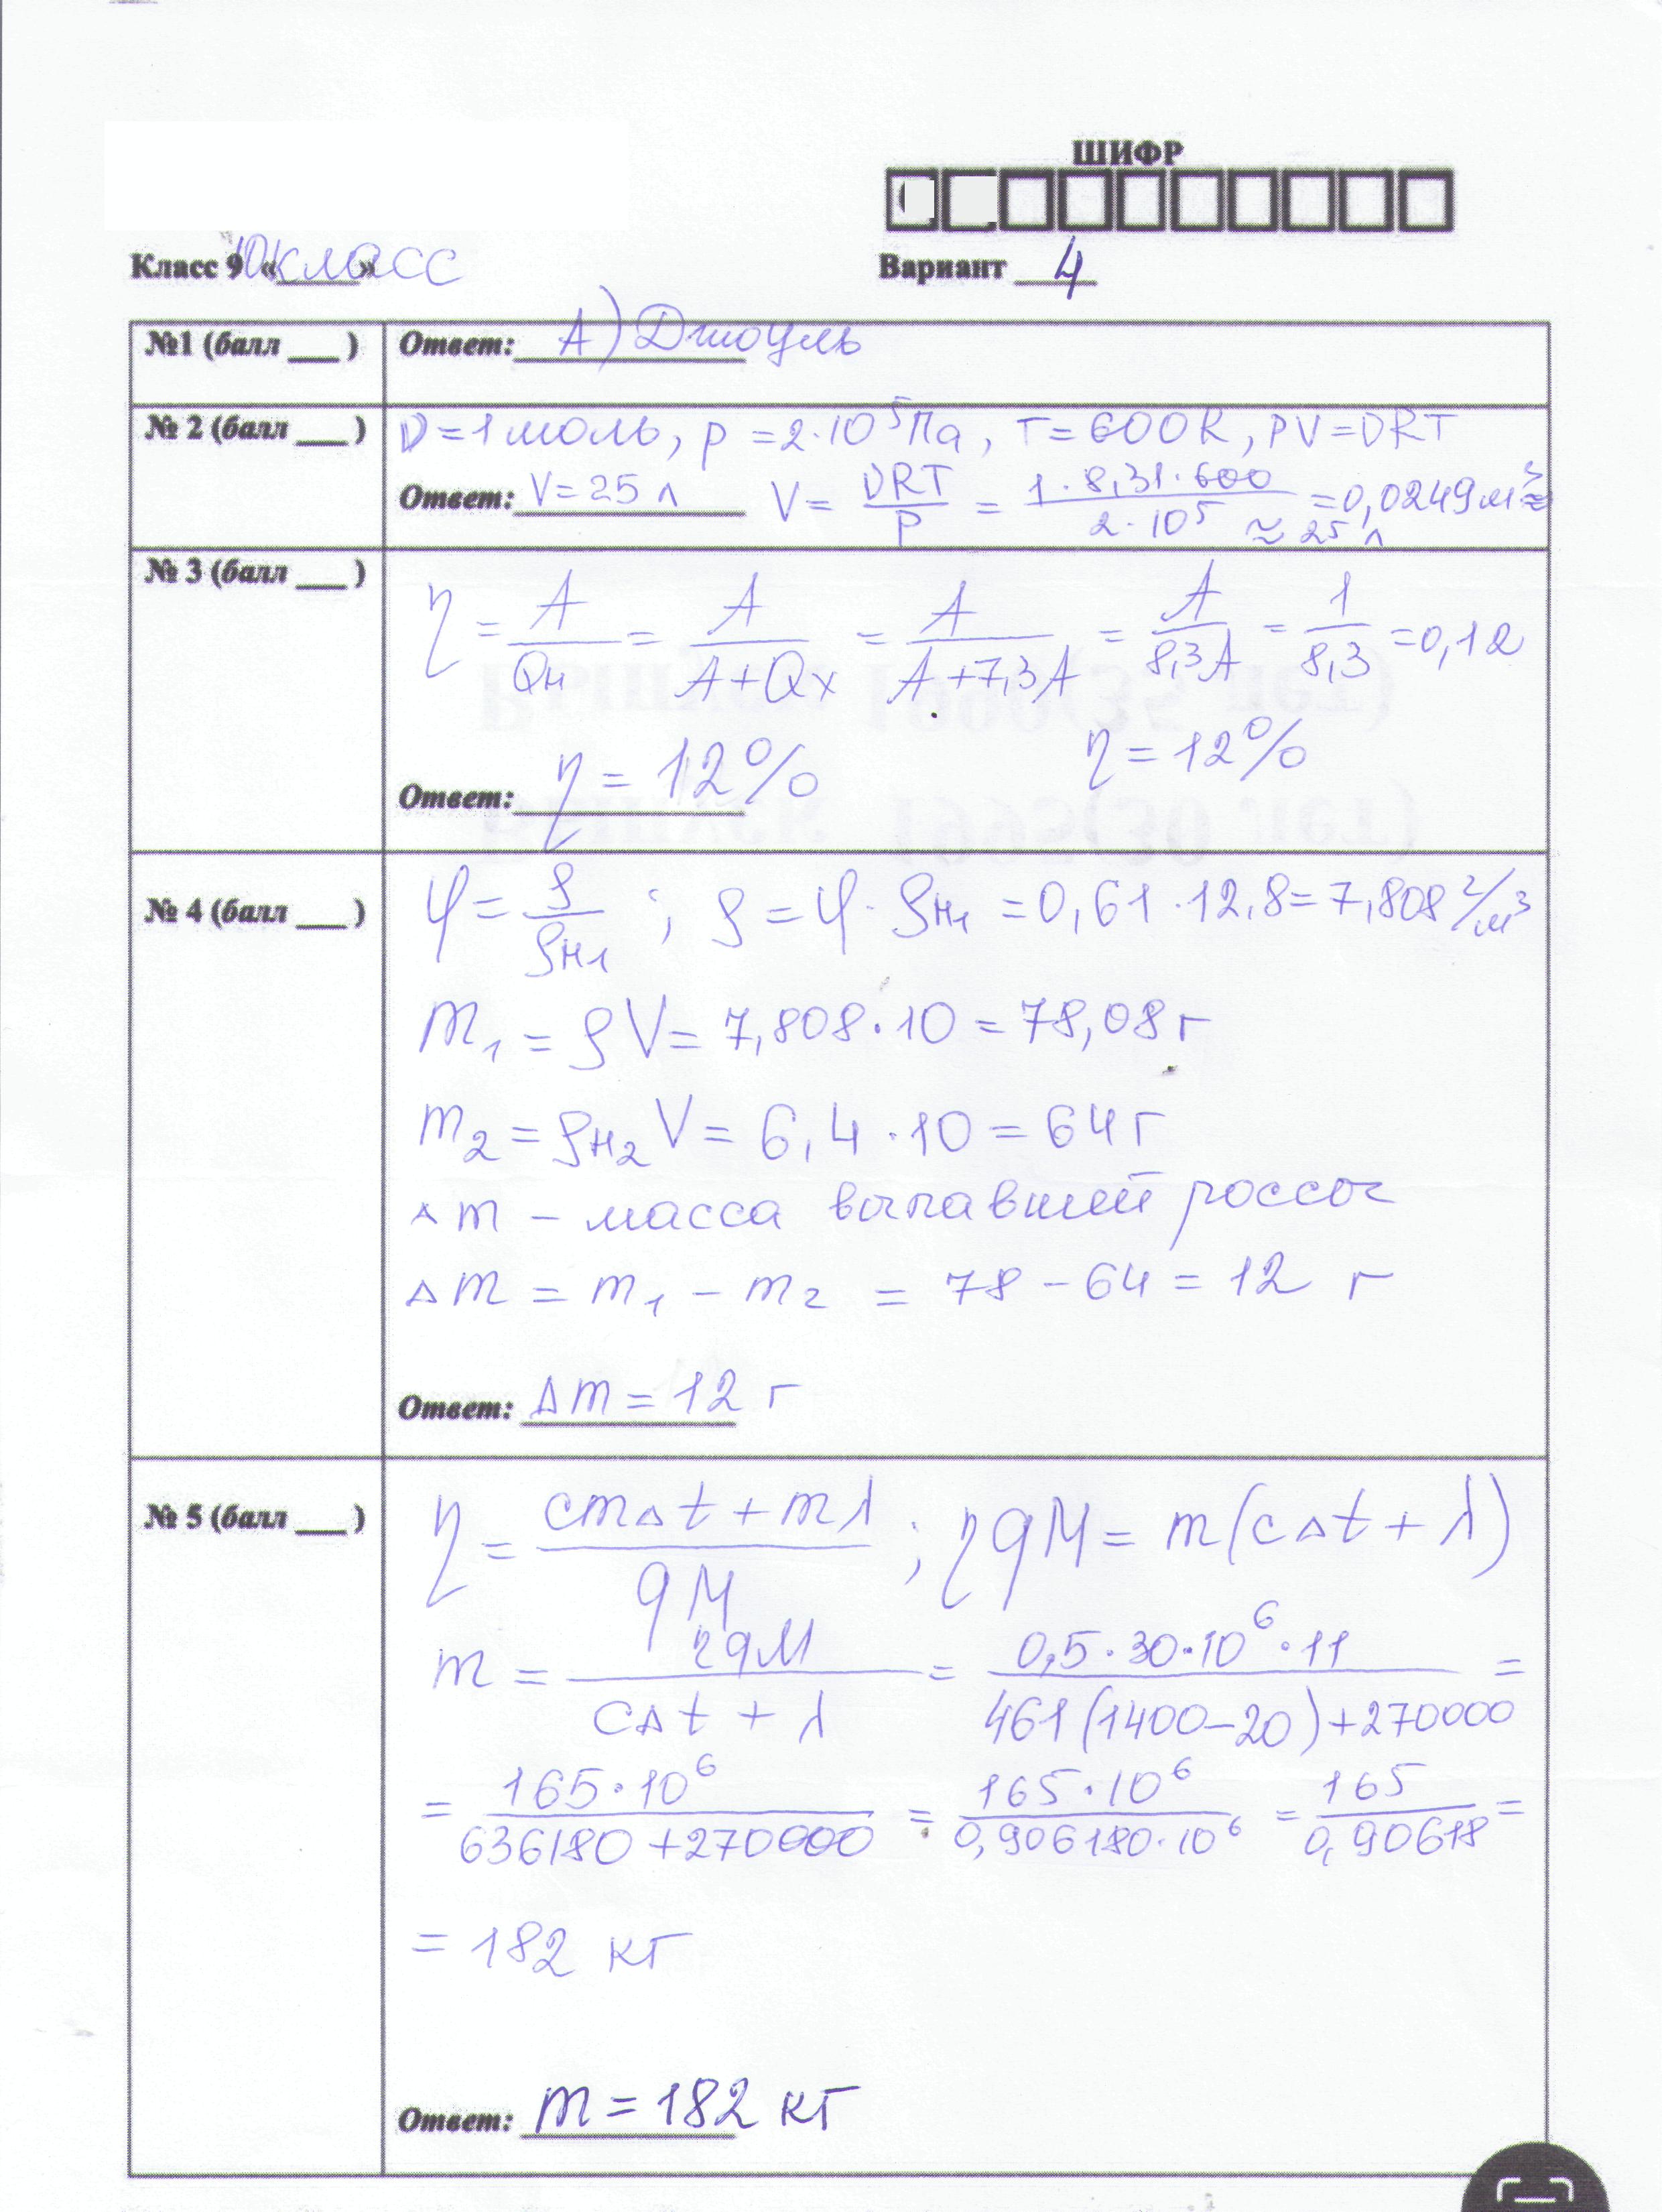 ШИФР
Класс 9 «10 класс»
Вариант 4
№1 (балл ___ ) Ответ: А) Джоуль
№ 2 (балл ___ ) ν = 1 моль, p = 2·10⁵ Па, T = 600K, PV = νRT
Ответ: V = 25 л V = νRT/P = 1·8,31·600/2·10⁵ = 0,0249 м³ ≈
≈ 25 л
№ 3 (балл ___ )
η = A/Qн = A/A+Qx = A/A+7,3A = A/8,3A = 1/8,3 = 0,12
η = 12%
Ответ: η = 12%
№ 4 (балл ___ )
φ = ρ/ρн₁ ; ρ = φ · ρн₁ = 0,61 · 12,8 = 7,808 г/м³
m₁ = ρV = 7,808 · 10 = 78,08 г
m₂ = ρн₂ V = 6,4 · 10 = 64 г
Δm – масса выпавшей россы
Δm = m₁ – m₂ = 78 – 64 = 12 г
Ответ: Δm = 12 г
№ 5 (балл ___ )
η = cmΔt + mλ/qM ; ηqM = m(cΔt + λ)
m = ηqM/cΔt + λ = 0,5·30·10⁶·11/461(1400–20)+270000 =
= 165·10⁶/636180+270000 = 165·10⁶/0,906180·10⁶ = 165/0,90618 =
= 182 кг
Ответ: m = 182 кг